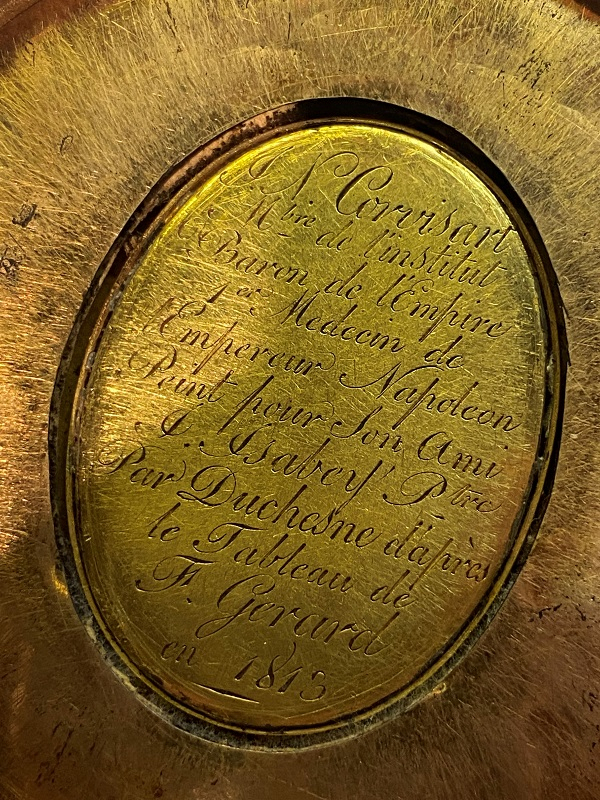 J N Corvisart
Mbre de l'institut
Baron de l'Empire
1er Medecin de
l'Empereur Napoleon
Peint pour Son Ami
J. Isabey Ptre
Par Duchesne d'après
le Tableau de
F. Gerard
en 1813